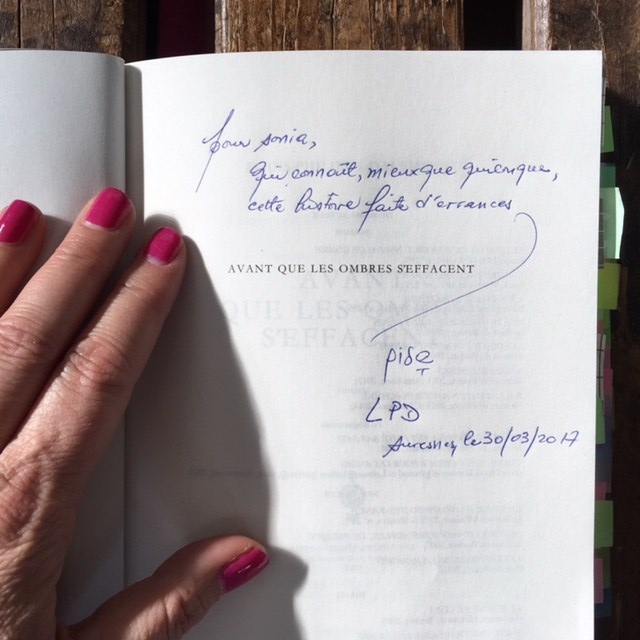 pour sonia,
qui connaît, mieux que quiconque,
cette histoire faite d'errances
AVANT QUE LES OMBRES S'EFFACENT
AVANT
QUE LES OMBRES
S'EFFACENT
LPD
Suresnes, le 30/03/2017